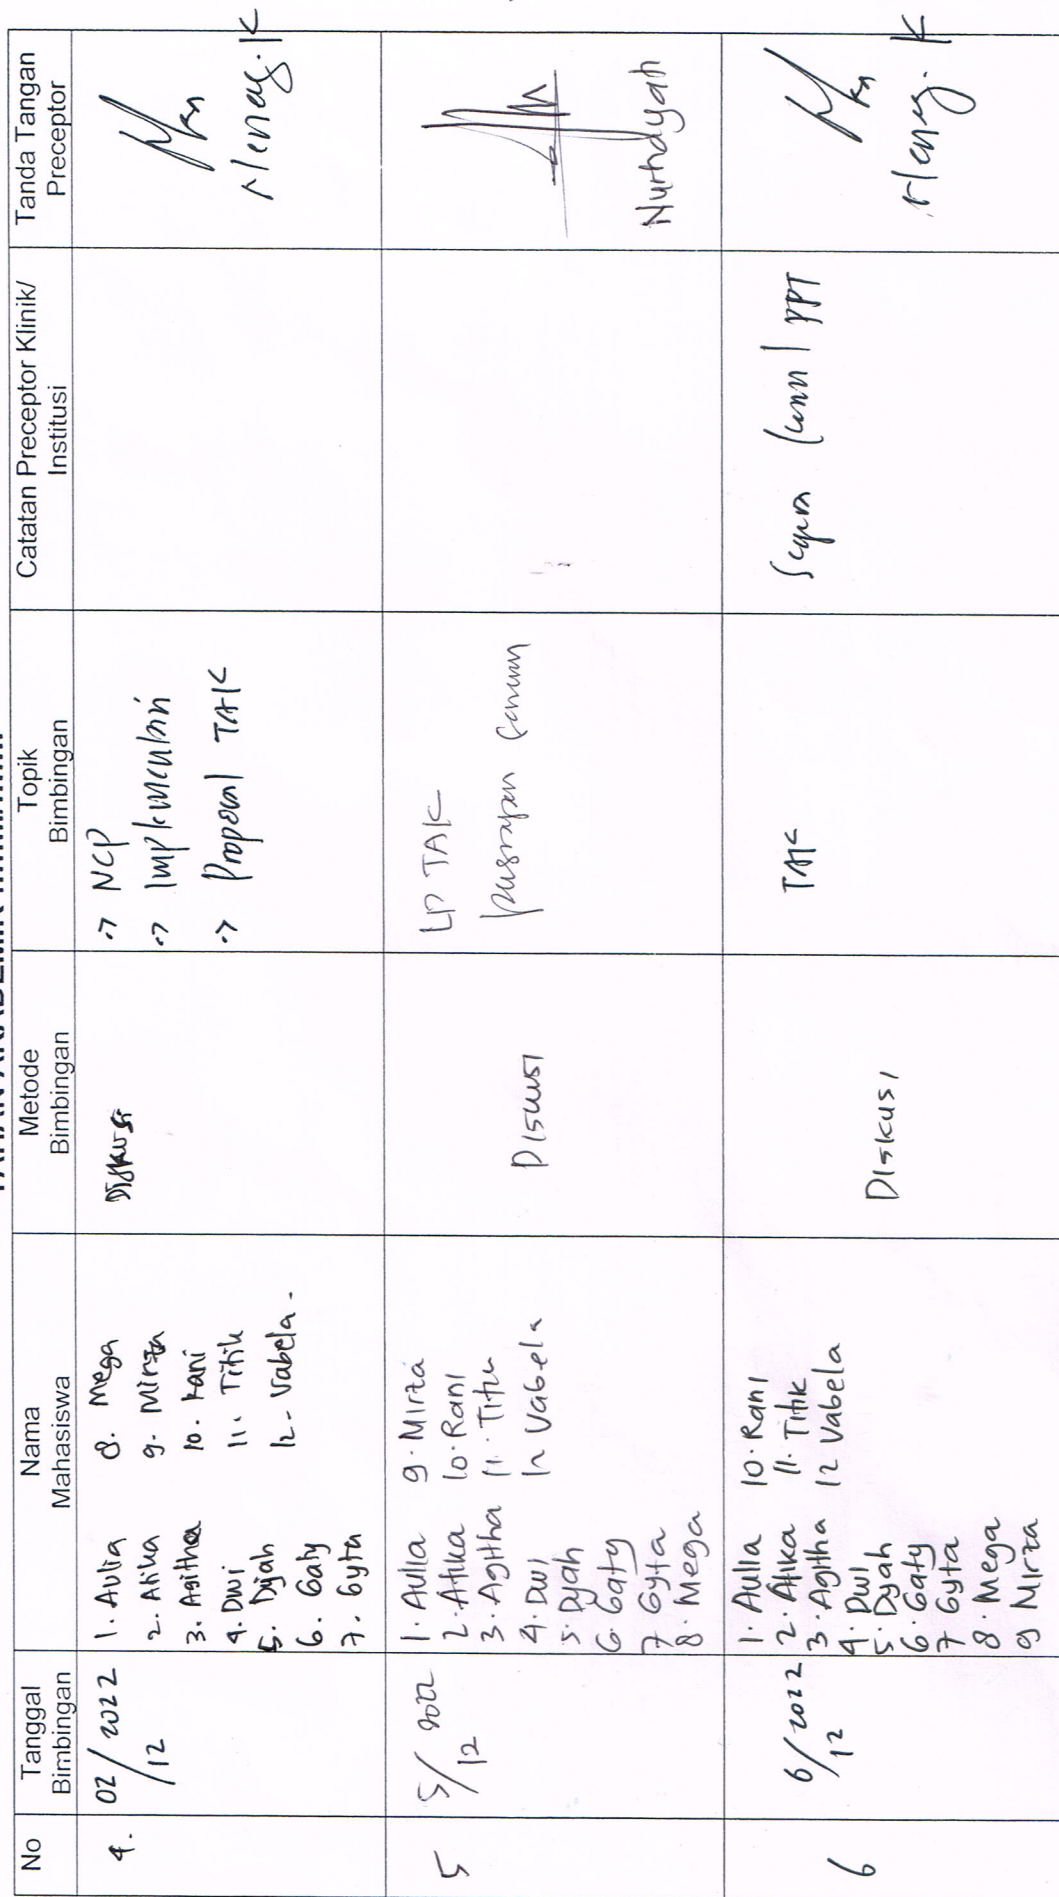 No
Tanggal Bimbingan
Nama Mahasiswa
Metode Bimbingan
Topik Bimbingan
Catatan Preceptor Klinik/ Institusi
Tanda Tangan Preceptor
4.
02/12 2022
1. Aulia
2. Atika
3. Agitha
4. Dwi
5. Dyah
6. Gaty
7. Gyta
8. Mega
9. Mirza
10. Rani
11. Titik
12. Vabela.
Diskusi
-> NCP
-> Implementasi
-> Proposal TAK
5
5/12 2022
1. Aulia
2. Atika
3. Agitha
4. Dwi
5. Dyah
6. Gaty
7 Gyta
8. Mega
9. Mirza
10. Rani
11. Titik
12 Vabela
Diskusi
LP TAK
Nurhdyah
6
6/12 2022
1. Aulia
2. Atika
3 Agitha
4. Dwi
5. Dyah
6. Gaty
7 Gyta
8. Mega
9 Mirza
10. Rani
11. Titik
12 Vabela
Diskusi
TAK
Segera PPT